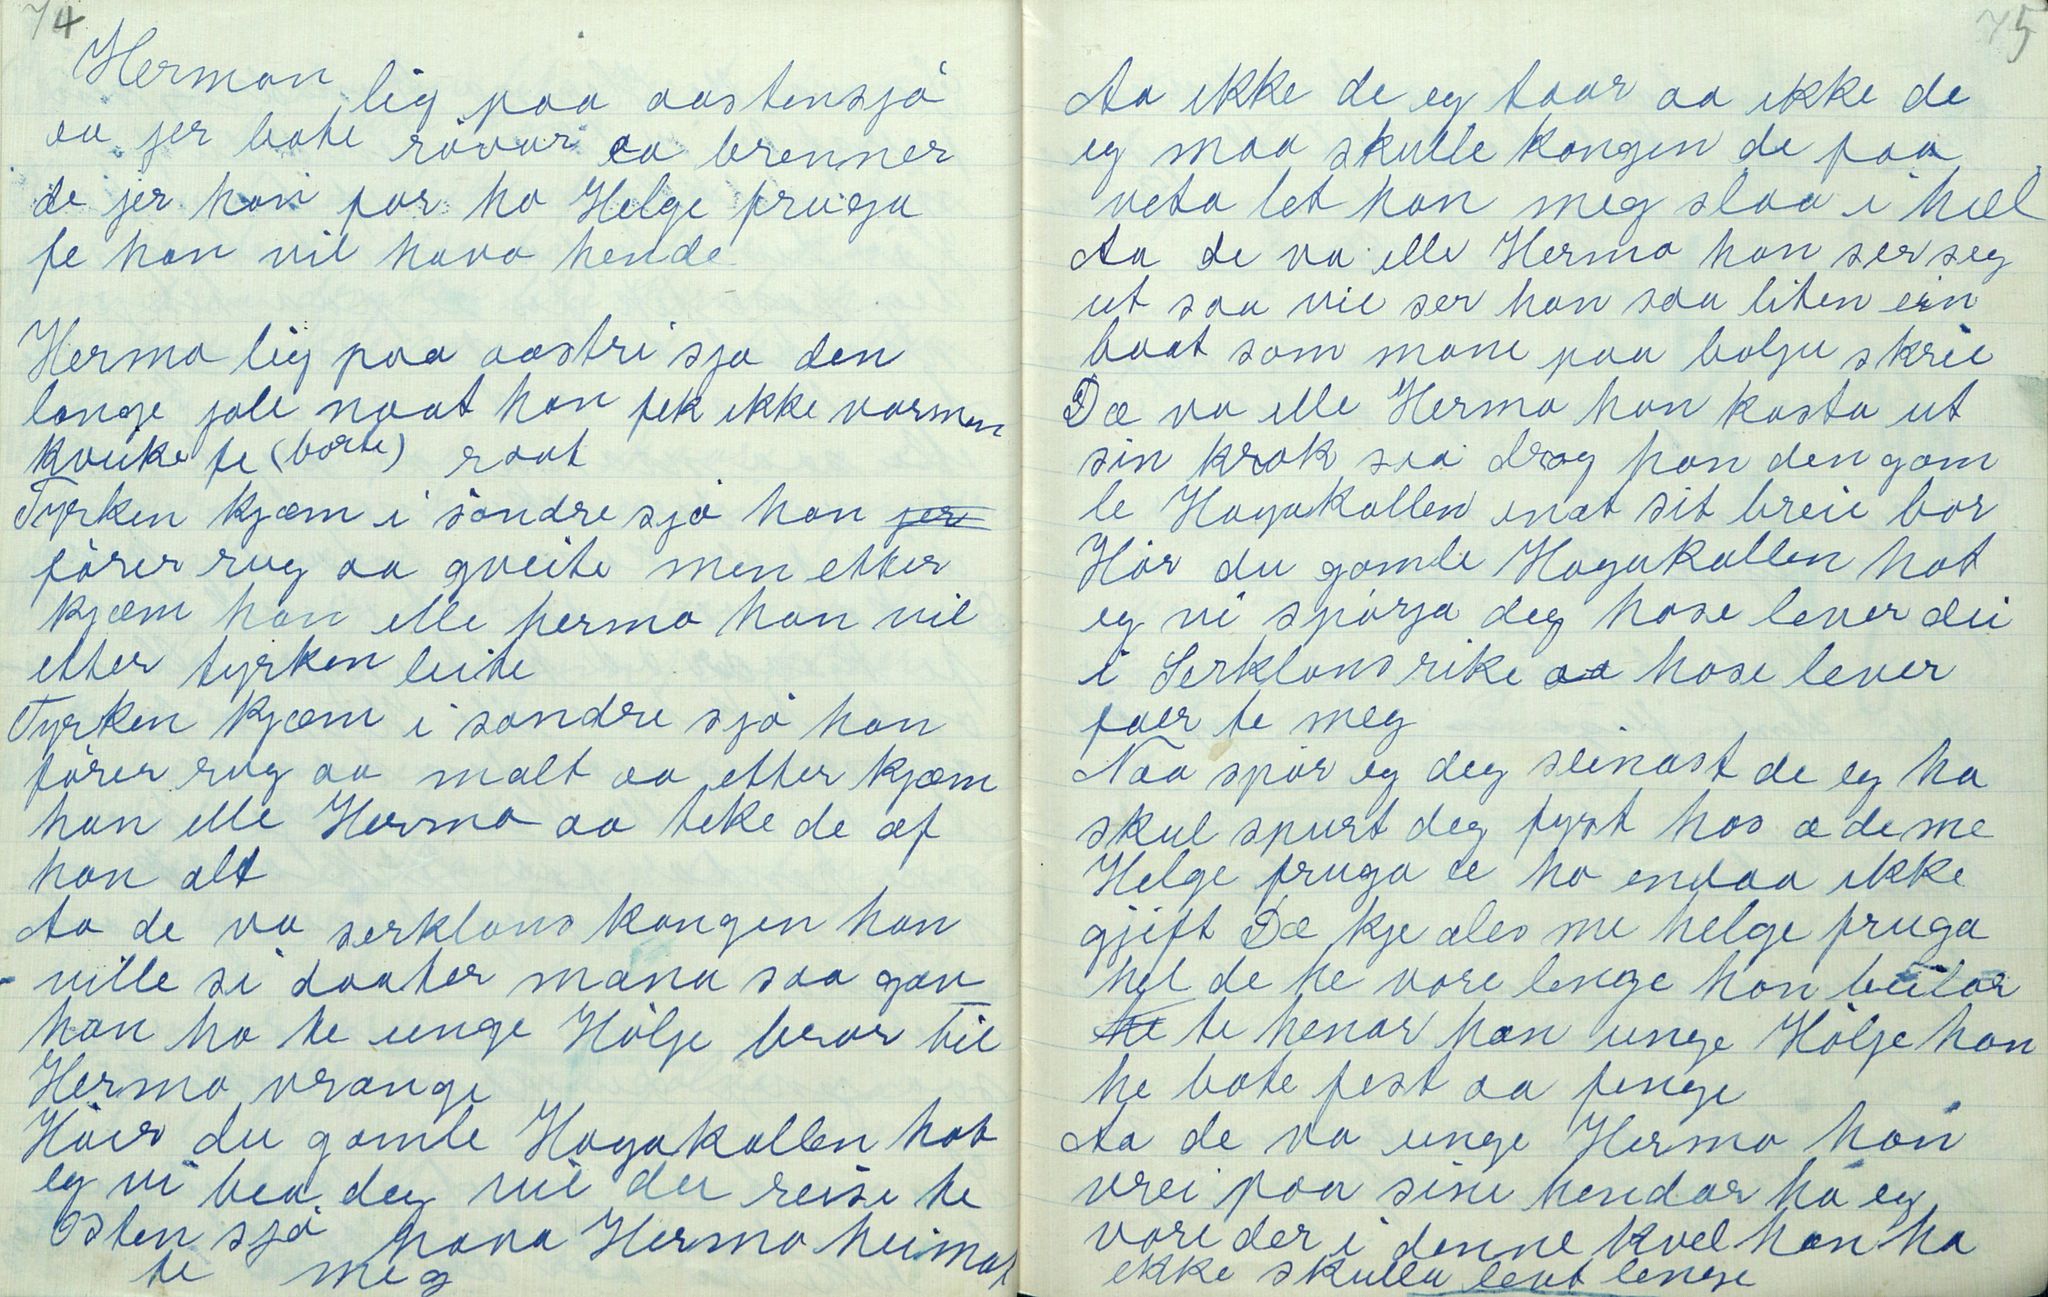 74
Herman lig paa aastensjó
aa jer bate róvar aa brenner
de jer han for ha Helge fruga
fe han vil hava hende
Herma lig paa aastri sjø den
lange jole naat han fek ikke varmen
kveike te (borte) raat
Tyrken kjæm i sóndre sjó han jer
fórer rug aa gveite men etter
kjæm han elle herma han vil
etter tyrken leite
Tyrken kjæm i sondre sjó han
fórer rug aa malt aa etter kjæm
han elle Herma aa teke de af
han alt
Aa de va serklans kongen han
ville si daater mana saa gav
han ho te unge Hólje bror til
Herma vrange
Hóir du gamle Hagakallen hat
eg vi bea deg vil du reise te
Østen sjó hava Herma heimat
te meg
75
Aa ikke de eg taar aa ikke de
eg maa skulle kongen de faa
veta let han meg slaa i hæl
Aa de va elle Herma han ser seg
ut saa vie ser han saa liten ein
baat som mone paa bolju skrie
Dæ va elle Herma han kasta ut
sin krok saa drog han den gam
le Hagakallen inat sit breie bor
Hór du gamle Hagakallen hat
eg vi spórja deg hose lever dei
i Serklans rike aa hose lever
faer te meg
Naa spór eg deg seinast de eg ha
skul spurt deg fyst hos æ de me
Helge fruga æ ho endaa ikke
gjift Dæ kje ales me helge fruga
hel de he vore lenge han beilar
he te henar han unge Hólje han
he bate fest aa fenge
Aa de va unge Herma han
vrei paa sine hendar ha eg
vore der i denne kvel han ha
ikke skulla levt lenge